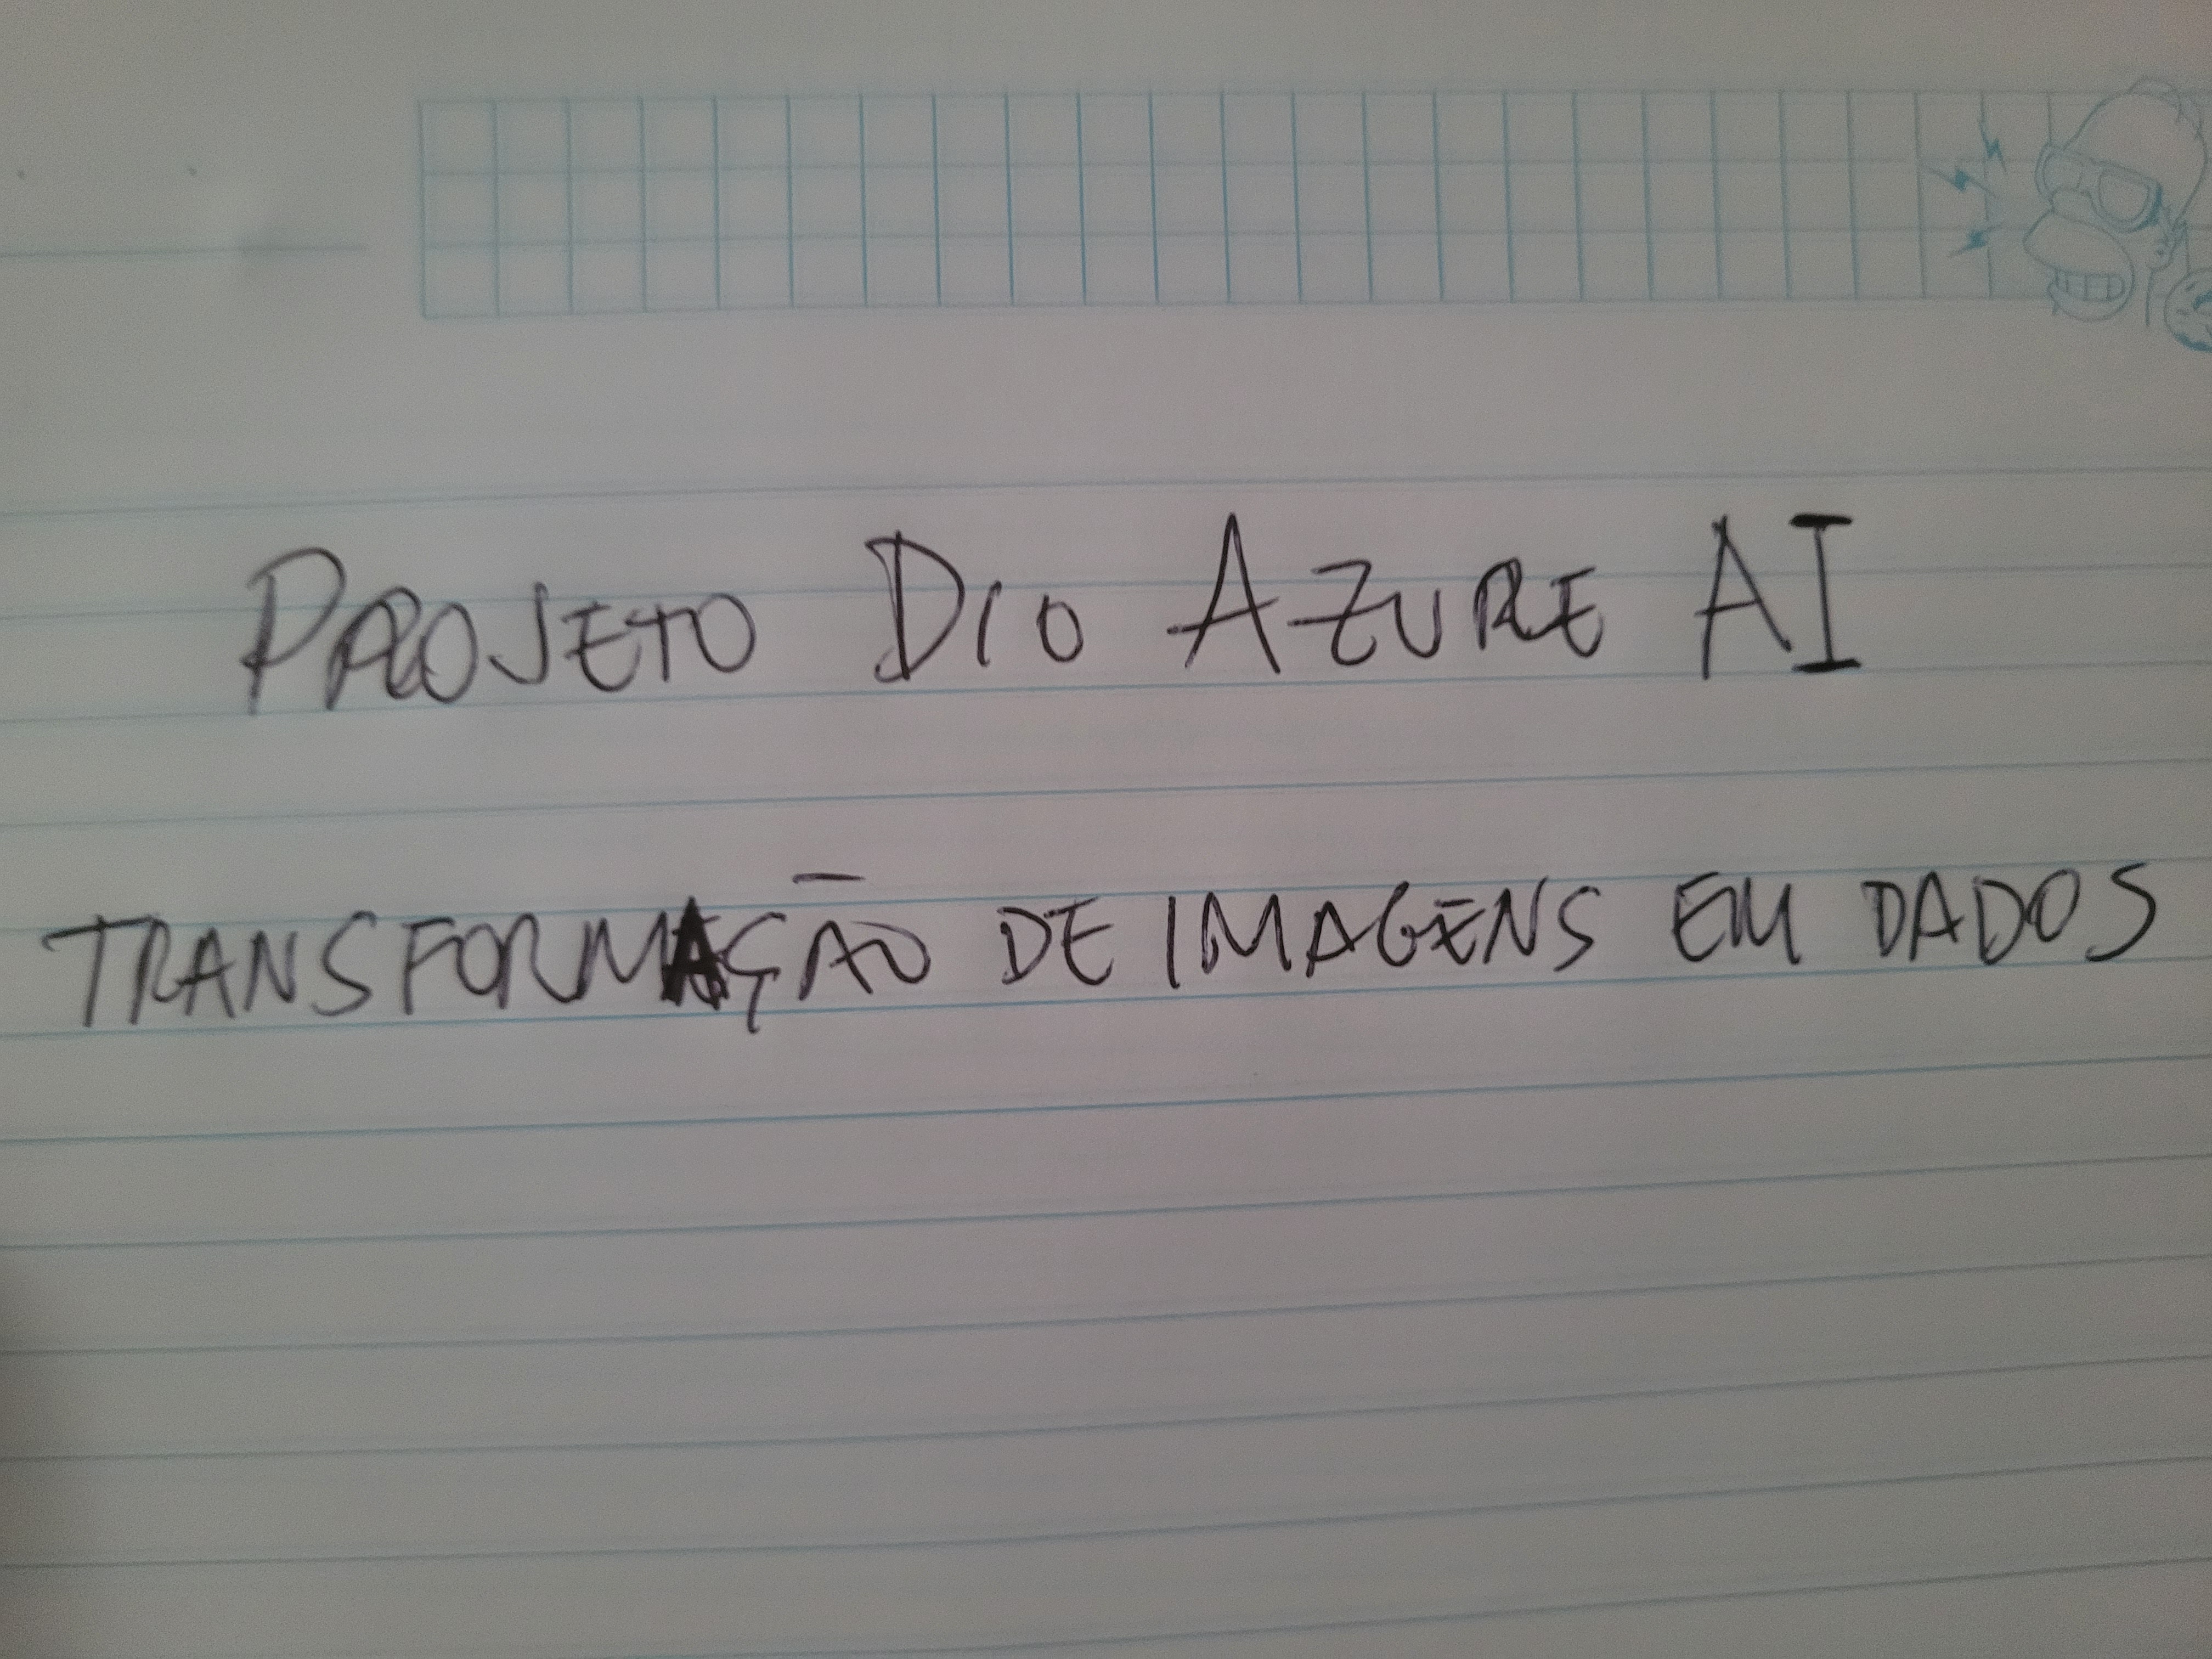 PROJETO DIO AZURE AI
TRANSFORMAÇÃO DE IMAGENS EM DADOS